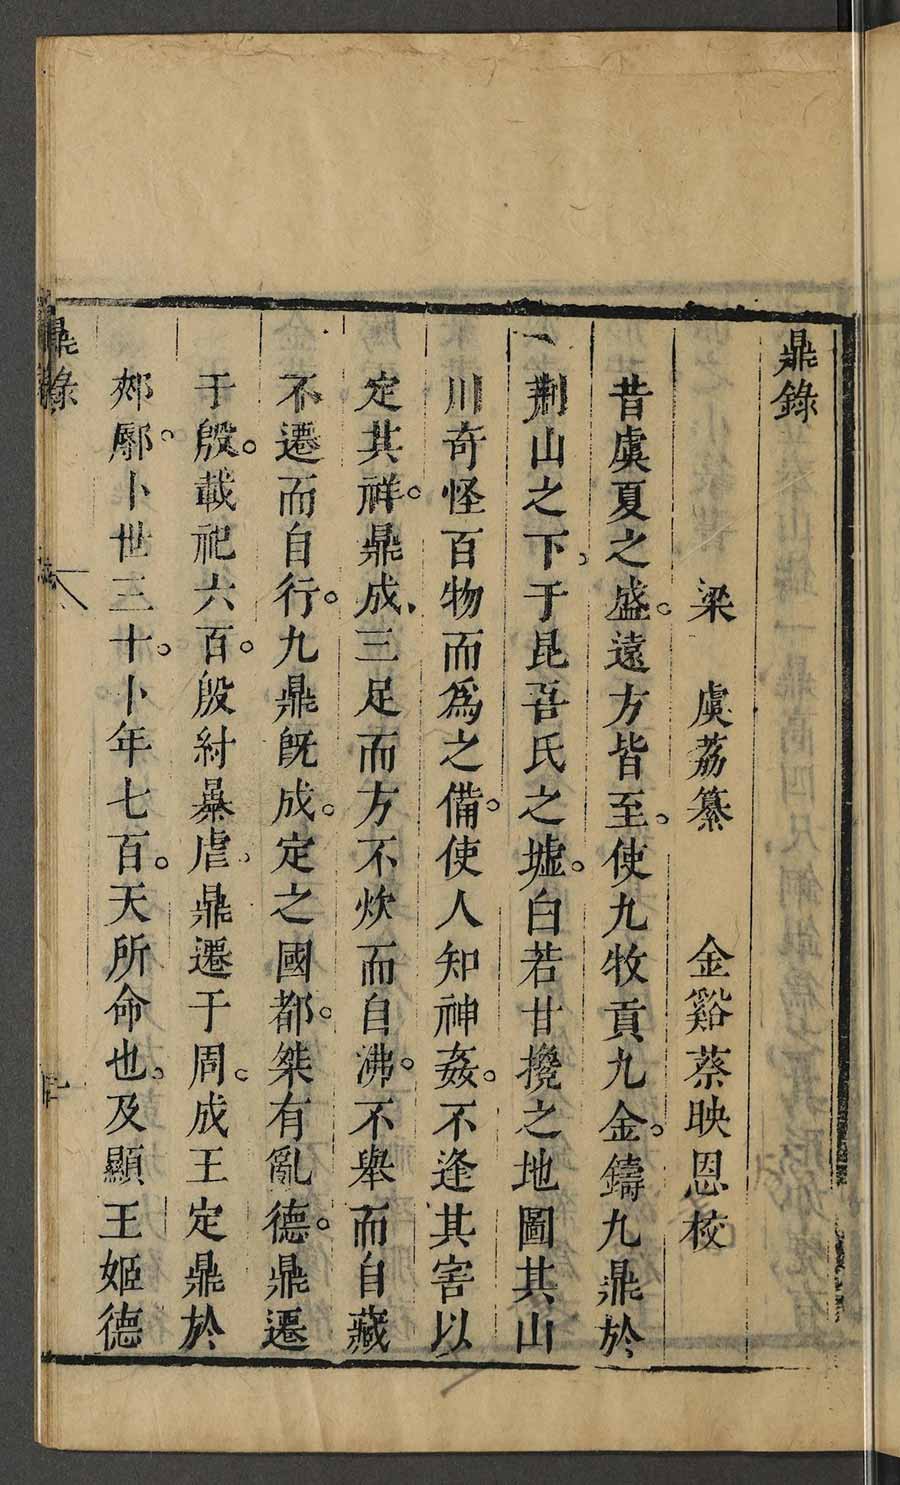 鼎錄
梁　虞荔纂　金谿蔡映恩校
昔虞夏之盛。遠方皆至。使九牧貢九金。鑄九鼎於
荆山之下、于昆吾氏之墟。白若甘攙之地圖其山
川奇怪百物而爲之備。使人知神姦。不逢其害以
定其祥。鼎成、三足而方不炊而自沸。不舉而自藏
不遷而自行。九鼎旣成。定之國都。桀有亂德。鼎遷
于殷。載祀六百。殷紂暴虐、鼎遷于周。成王定鼎於
郟鄏。卜世三十。卜年七百。天所命也、及顯王姬德
鼎錄